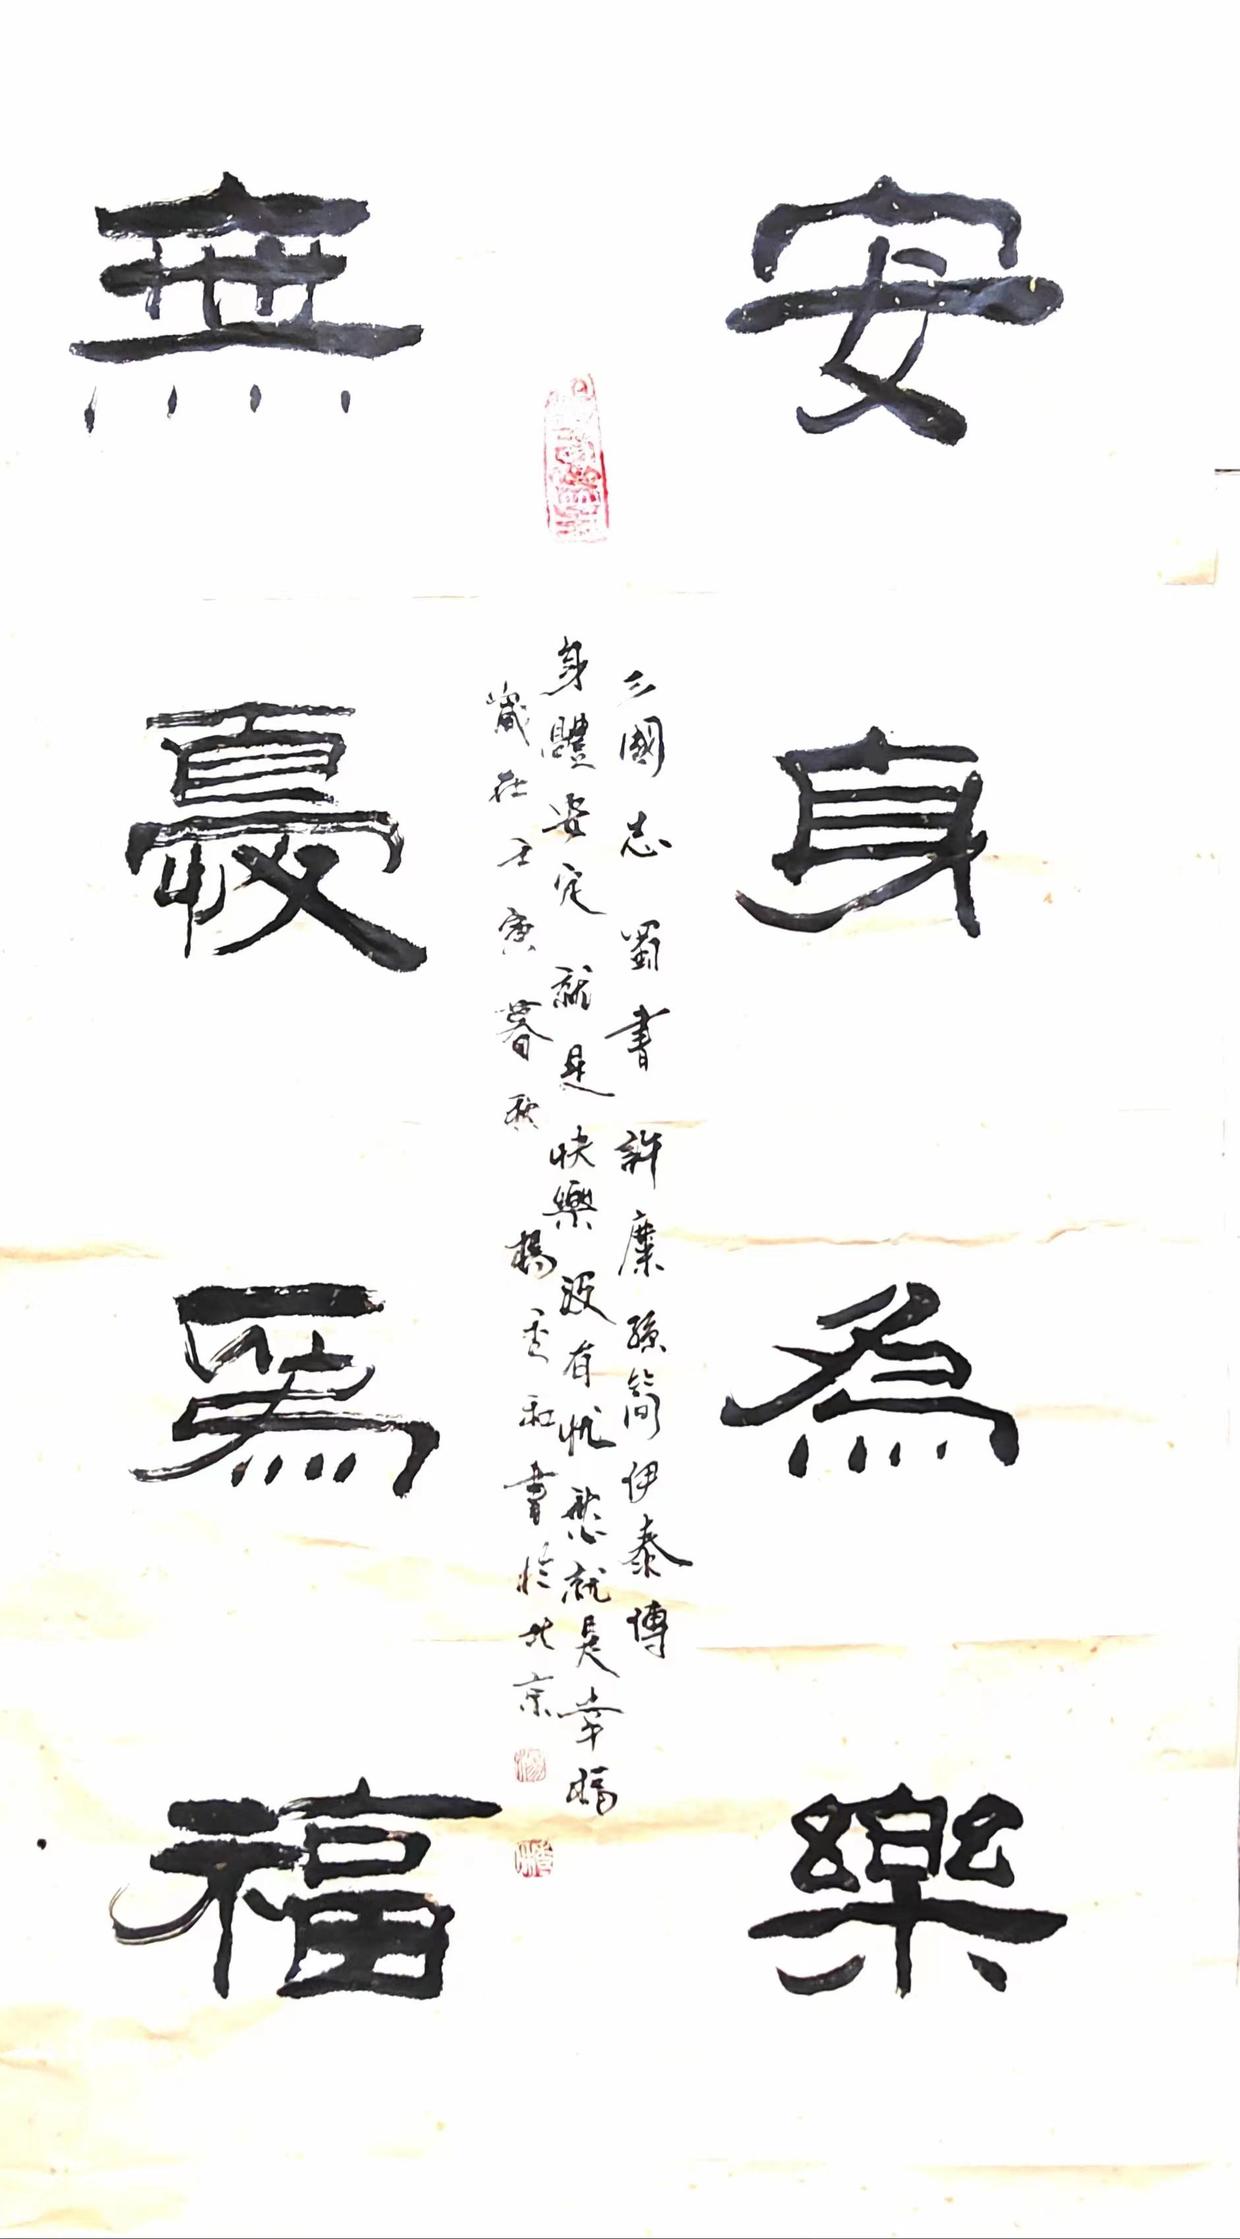 安身為樂
無憂為福
三國志蜀書許麋孫簡伊秦傳
身體安定就是快樂沒有忧愁就是幸福
歲在壬寅暮秋楊雲和書於北京